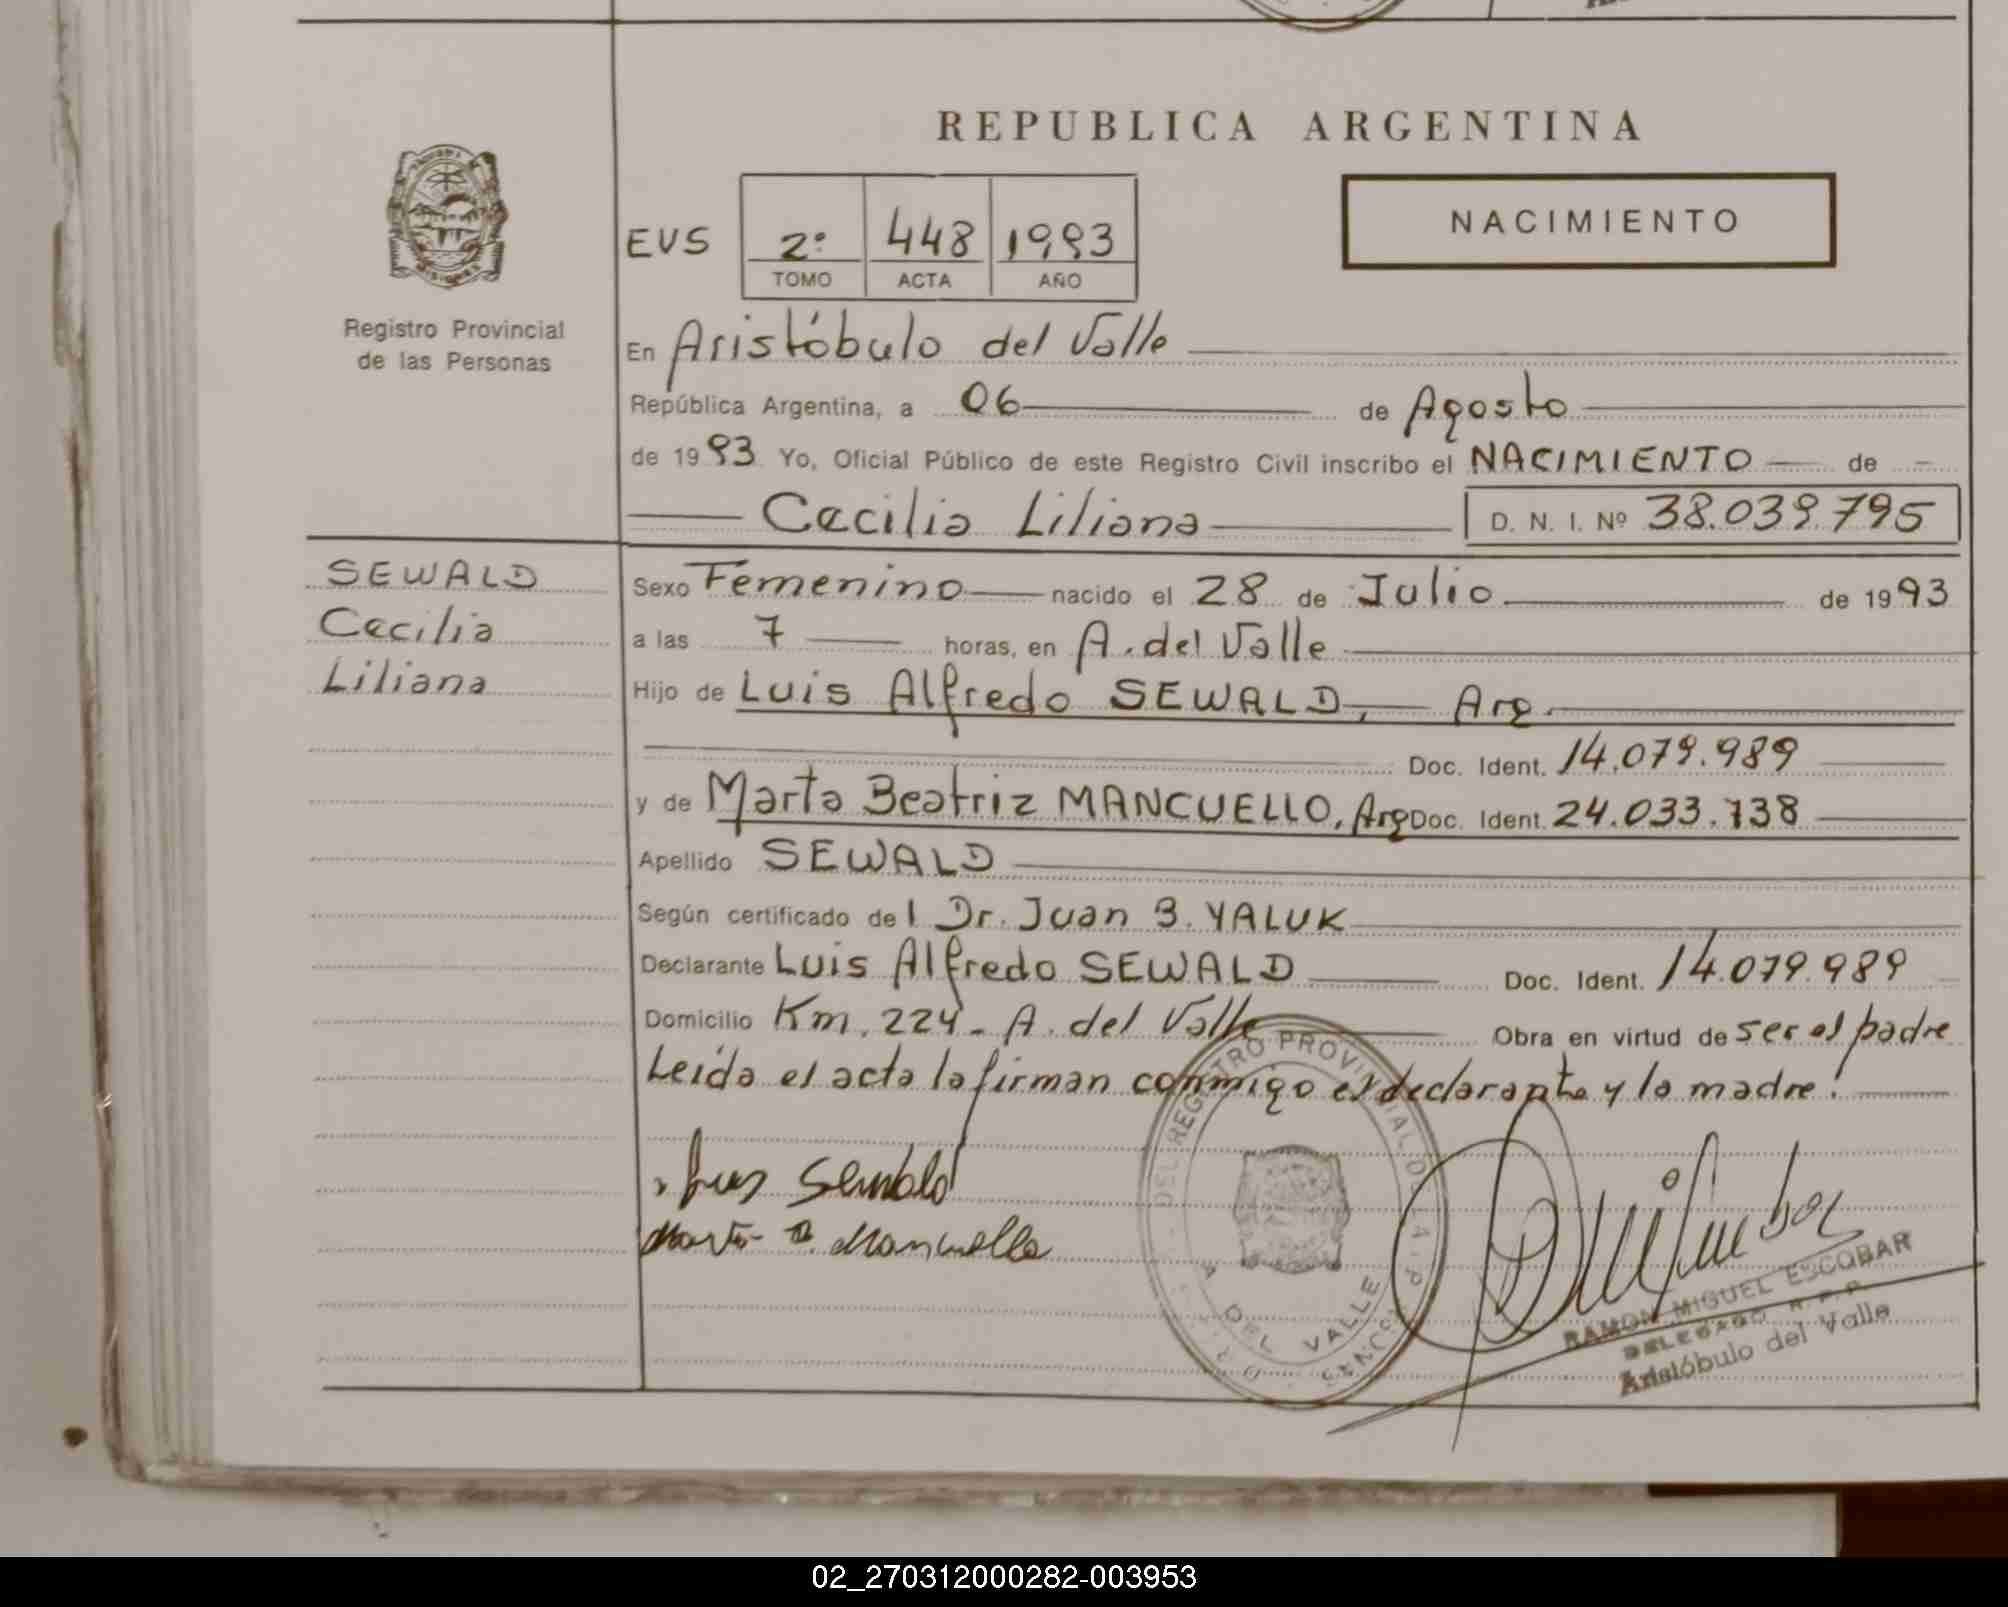 REPUBLICA ARGENTINA
NACIMIENTO
EVS 2º 448 1993
TOMO ACTA AÑO
Registro Provincial
de las Personas
En Aristóbulo del Valle
República Argentina, a 06 de Agosto
de 1993 Yo, Oficial Público de este Registro Civil inscribo el NACIMIENTO de
Cecilia Liliana D. N. I. Nº 38.039.795
SEWALD
Cecilia
Liliana
Sexo Femenino nacido el 28 de Julio de 1993
a las 7 horas, en A. del Valle
Hijo de Luis Alfredo SEWALD, Arg.
Doc. Ident. 14.079.989
y de Marta Beatriz MANCUELLO, Arg Doc. Ident. 24.033.738
Apellido SEWALD
Según certificado del Dr. Juan B. YALUK
Declarante Luis Alfredo SEWALD Doc. Ident. 14.079.989
Domicilio Km. 224 - A. del Valle Obra en virtud de ser el padre
Leída el acta la firman conmigo el declarante y la madre.
Luis Sewald
Marta B. Mancuello
DEL REGISTRO PROVINCIAL DE LA P
A DEL VALLE
RAMON MIGUEL ESCOBAR
DELEGADO R.P.P.
Aristóbulo del Valle
02_270312000282-003953